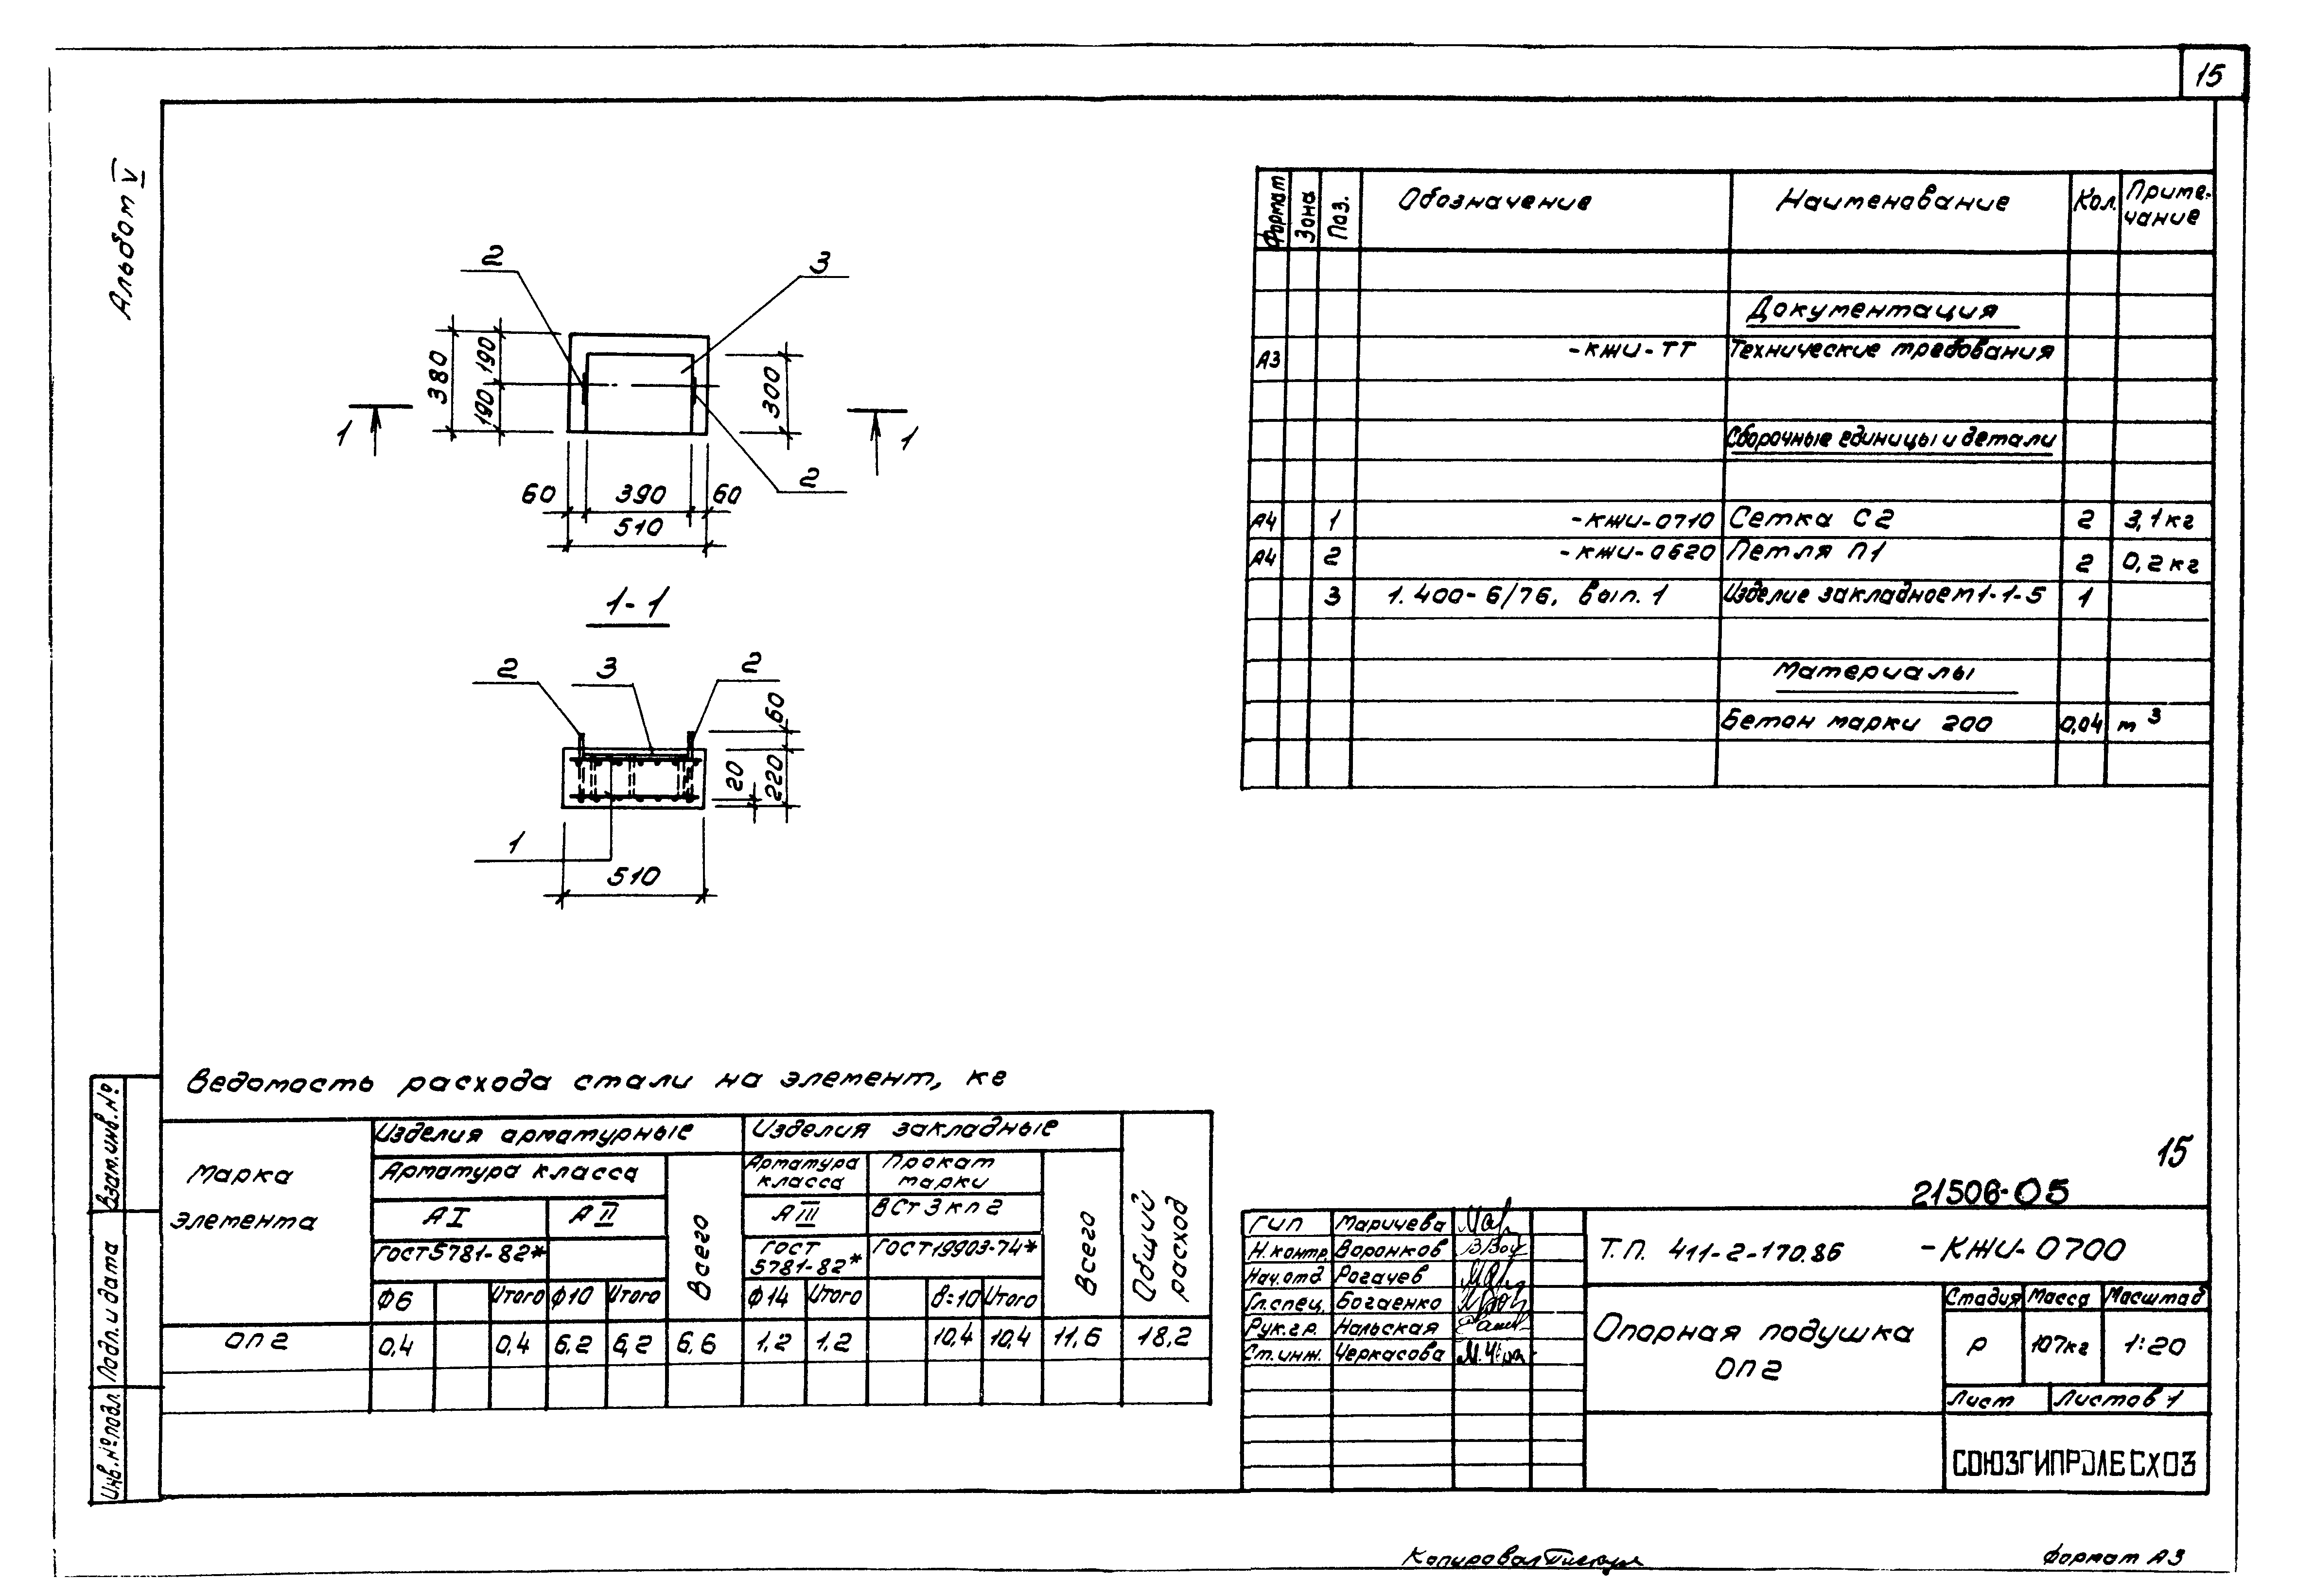 15
Альбом V
2
3
380
190
190
300
1
1
60
390
60
2
510
1-1
2
3
2
60
20
220
1
510
Формат
Зона
Поз.
Обозначение
Наименование
Кол.
Приме-
чание
Документация
А3
-КЖИ-ТТ
Технические требования
Сборочные единицы и детали
А4
1
-КЖИ-0710
Сетка С2
2
3,1 кг
А4
2
-КЖИ-0620
Петля П1
2
0,2 кг
3
1.400-6/76, вып. 1
Изделие закладное м1-1-5
1
Материалы
Бетон марки 200
0,04
м³
Ведомость расхода стали на элемент, кг
Марка
элемента
Изделия арматурные
Изделия закладные
Общий
расход
Арматура класса
Всего
Арматура
класса
Прокат
марки
Всего
А I
А II
А III
ВСт 3 кп 2
ГОСТ 5781-82*
ГОСТ
5781-82*
ГОСТ 19903-74*
Ф6
Итого
Ф10
Итого
Ф14
Итого
δ=10
Итого
ОП 2
0,4
0,4
6,2
6,2
6,6
1,2
1,2
10,4
10,4
11,6
18,2
Взам.инв.№
Подп. и дата
Инв.№подл.
15
21506-05
ГИП
Маричева
Н.контр.
Воронков
Нач.отд
Рогачев
Гл.спец.
Богаенко
Рук.гр.
Нальская
Ст.инж.
Черкасова
Т.П. 411-2-170.86
-КЖИ-0700
Опорная подушка
ОП 2
Стадия
Масса
Масштаб
Р
107кг
1:20
Лист
Листов 1
СОЮЗГИПРОЛЕСХОЗ
Копировал
Формат А3